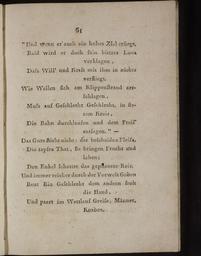 61
"Und wenn er auch ein hohes Ziel erfliegt,
Bald wird er doch sein bittres Loos
verklagen,
Dass Will' und Kraft mit ihm in nichts
verfliegt.
Wie Wellen sich am Klippenstrand zer-
schlagen,
Muss auf Geschlecht Geschlecht, in
Die Bahn durchlaufen und dem
entsagen." —
Das Gute stirbt nicht: der bescheidne Fleiss,
Die tapfre That, sie bringen Frucht und
leben;
Den Enkel schattet das gepflanzte Reis,
Und immer reicher durch der Vorwelt Gaben
Beut Ein Geschlecht dem andern froh
die Hand,
Und paart im Wettlauf Greise, Männer,
Knaben.